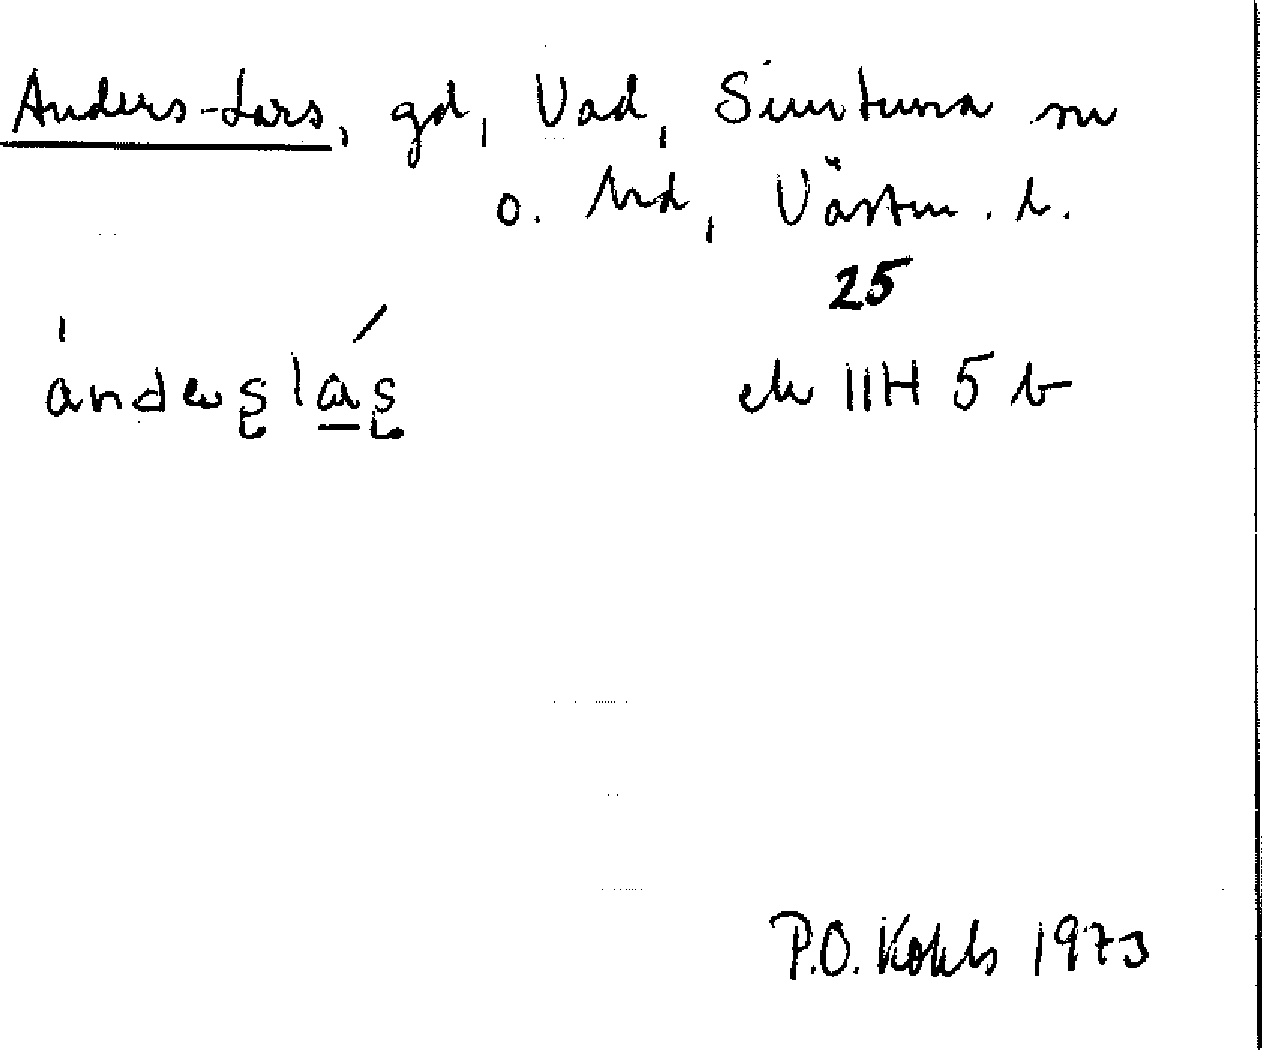 Anders-Lars, gd, Vad, Simtuna sn
o. hd, Västm. l.
25
ánderslás
ek 11H 5 b
P.O. Kohls 1973